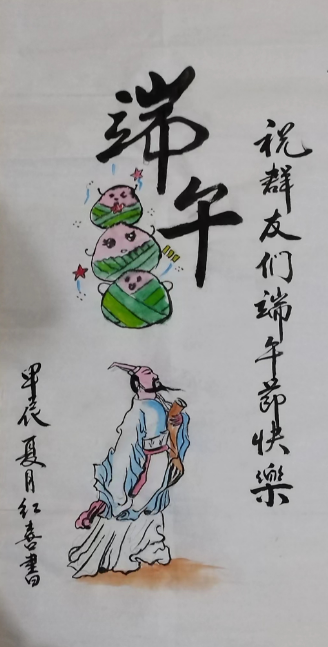 祝群友们端午節快樂
端午
甲辰夏月红喜書